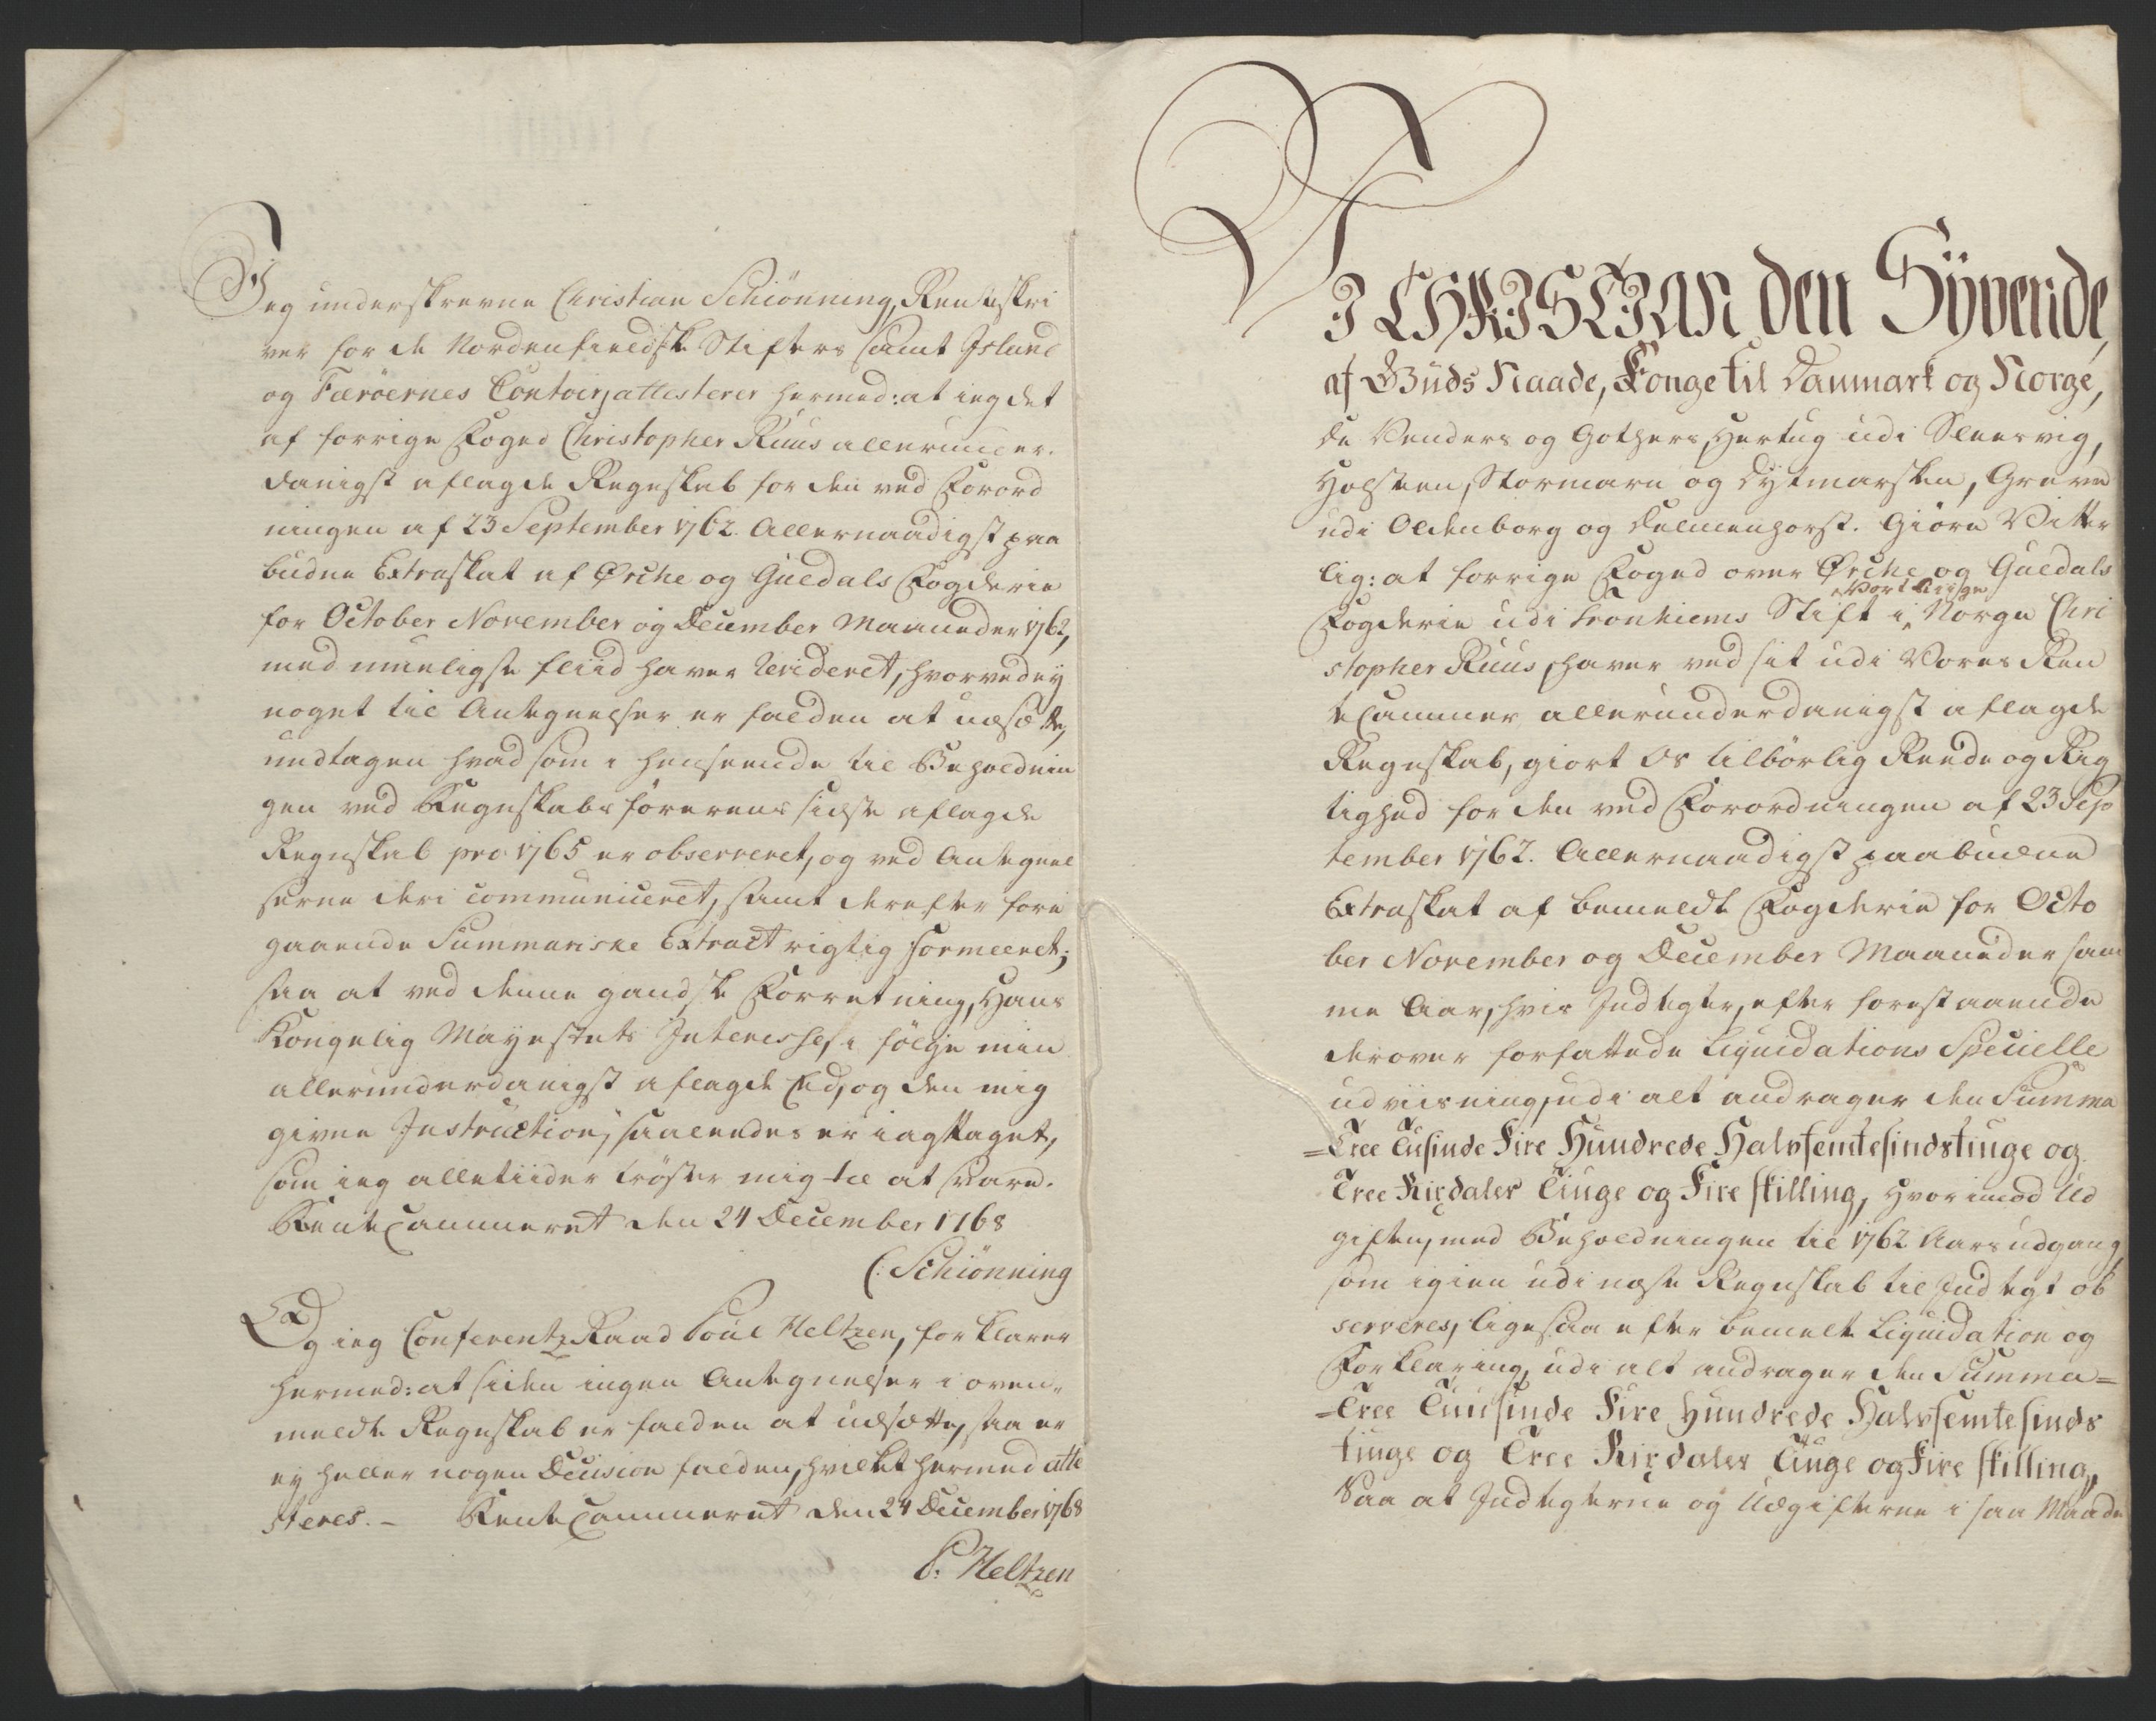 Jeg underskrevne Christian Schiönning, Renteskri
ver for de Nordenfieldske Stifters samt Island
og Færöernes Contoir, attesterer hermed: at jeg det
af forrige Foged Christopher Ruus allerunder-
danigst aflagde Regnskab for den ved Forord
ningen af 23 September 1762. Allernaadigst paa
budne Extraskat af Ørche og Guldals Fogderie
for October November og December Maaneder 1762,
med mueligste fliid haver revideret, hvorved ey
noget til Antegnelser er falden at udsætte,
undtagen hvad som i henseende til Beholdnin
gen ved Regnskabsførerens sidste aflagde
Regnskab pro 1765 er observeret, og ved Antegnel
serne deri communiceret, samt derefter fore
gaaende Summariske Extract rigtig formeeret;
saa at ved denne gandske Forretning, Hans
Kongelig Mayestets Interesse, i følge min
allerunderdanigst aflagde Eed, og den mig
givne Instruction, saaledes er iagttaget,
som jeg alletiider trøster mig til at svare.
RenteCammeret den 24 December 1768
C: Schiönning
Og jeg ConferentzRaad Poul Heltzen, forklarer
hermed: at siden ingen Antegnelser i oven-
meldte Regnskab er falden at udsætte, saa er
ey heller nogen Decision falden, hvilket hermed atte
steres. - RenteCammeret den 24 December 1768
P: Heltzen
VI CHRISTIAN den Syvende,
af Guds Naade, Konge til Danmark og Norge,
de Venders og Gothers, Hertug udi Slesvig,
Holsteen, Stormarn og Dytmarsken, Greve
udi Oldenborg og Delmenhorst. Giøre Vitter
lig: at forrige Foged over Ørche og Guldals
Vort Riige
Fogderie udi Tronhiems Stift i Norge Chri
stopher Ruus, haver ved sit udi Vores Ren
teCammer allerunderdanigst aflagde
Regnskab, giort Os tilbørlig Reede og Rig
tighed for den ved Forordningen af 23 Sep
tember 1762. Allernaadigst paabudne
Extraskat af bemeldte Fogderie for Octo
ber November og December Maaneder sam
me Aar, hvis Indtegter, efter forestaaende
derover forfattede Liquidations Specielle
udviisning, udi alt andrager den Summa
=Tree Tusinde Fire Hundrede Halvfemtesindstiuge og
Tree Rixdaler Tiuge og Fire skilling, hvorimod Ud
giften, med Beholdningen til 1762 Aars udgang,
som igien udi næste Regnskab til Indtegt ob
serveres, ligesaa efter bemelte Liquidation og
Forklaring, udi alt andrager den Summa=
=Tree Tuusinde Fire Hundrede Halvfemtesinds
tiuge og Tree Rixdaler Tiuge og Fire skilling,
Saa at Indtegterne og Udgifterne i saa Maade